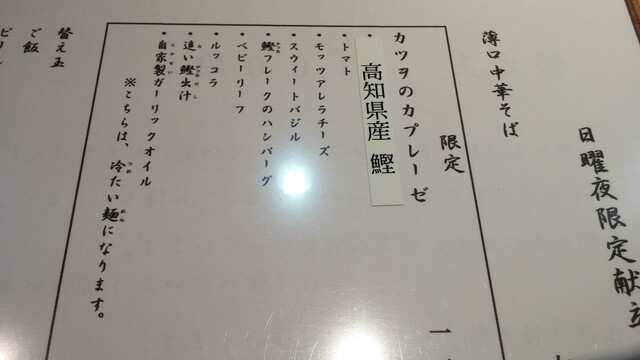 日曜夜限定献立
薄口中華そば
限定
カツヲのカプレーゼ
・高知県産 鰹
・トマト
・モッツアレラチーズ
・スウィートバジル
・鰹フレークのハンバーグ
・ベビーリーフ
・ルッコラ
・追い鰹出汁
・自家製ガーリックオイル
※こちらは、冷たい麺になります。
替え玉
ご飯